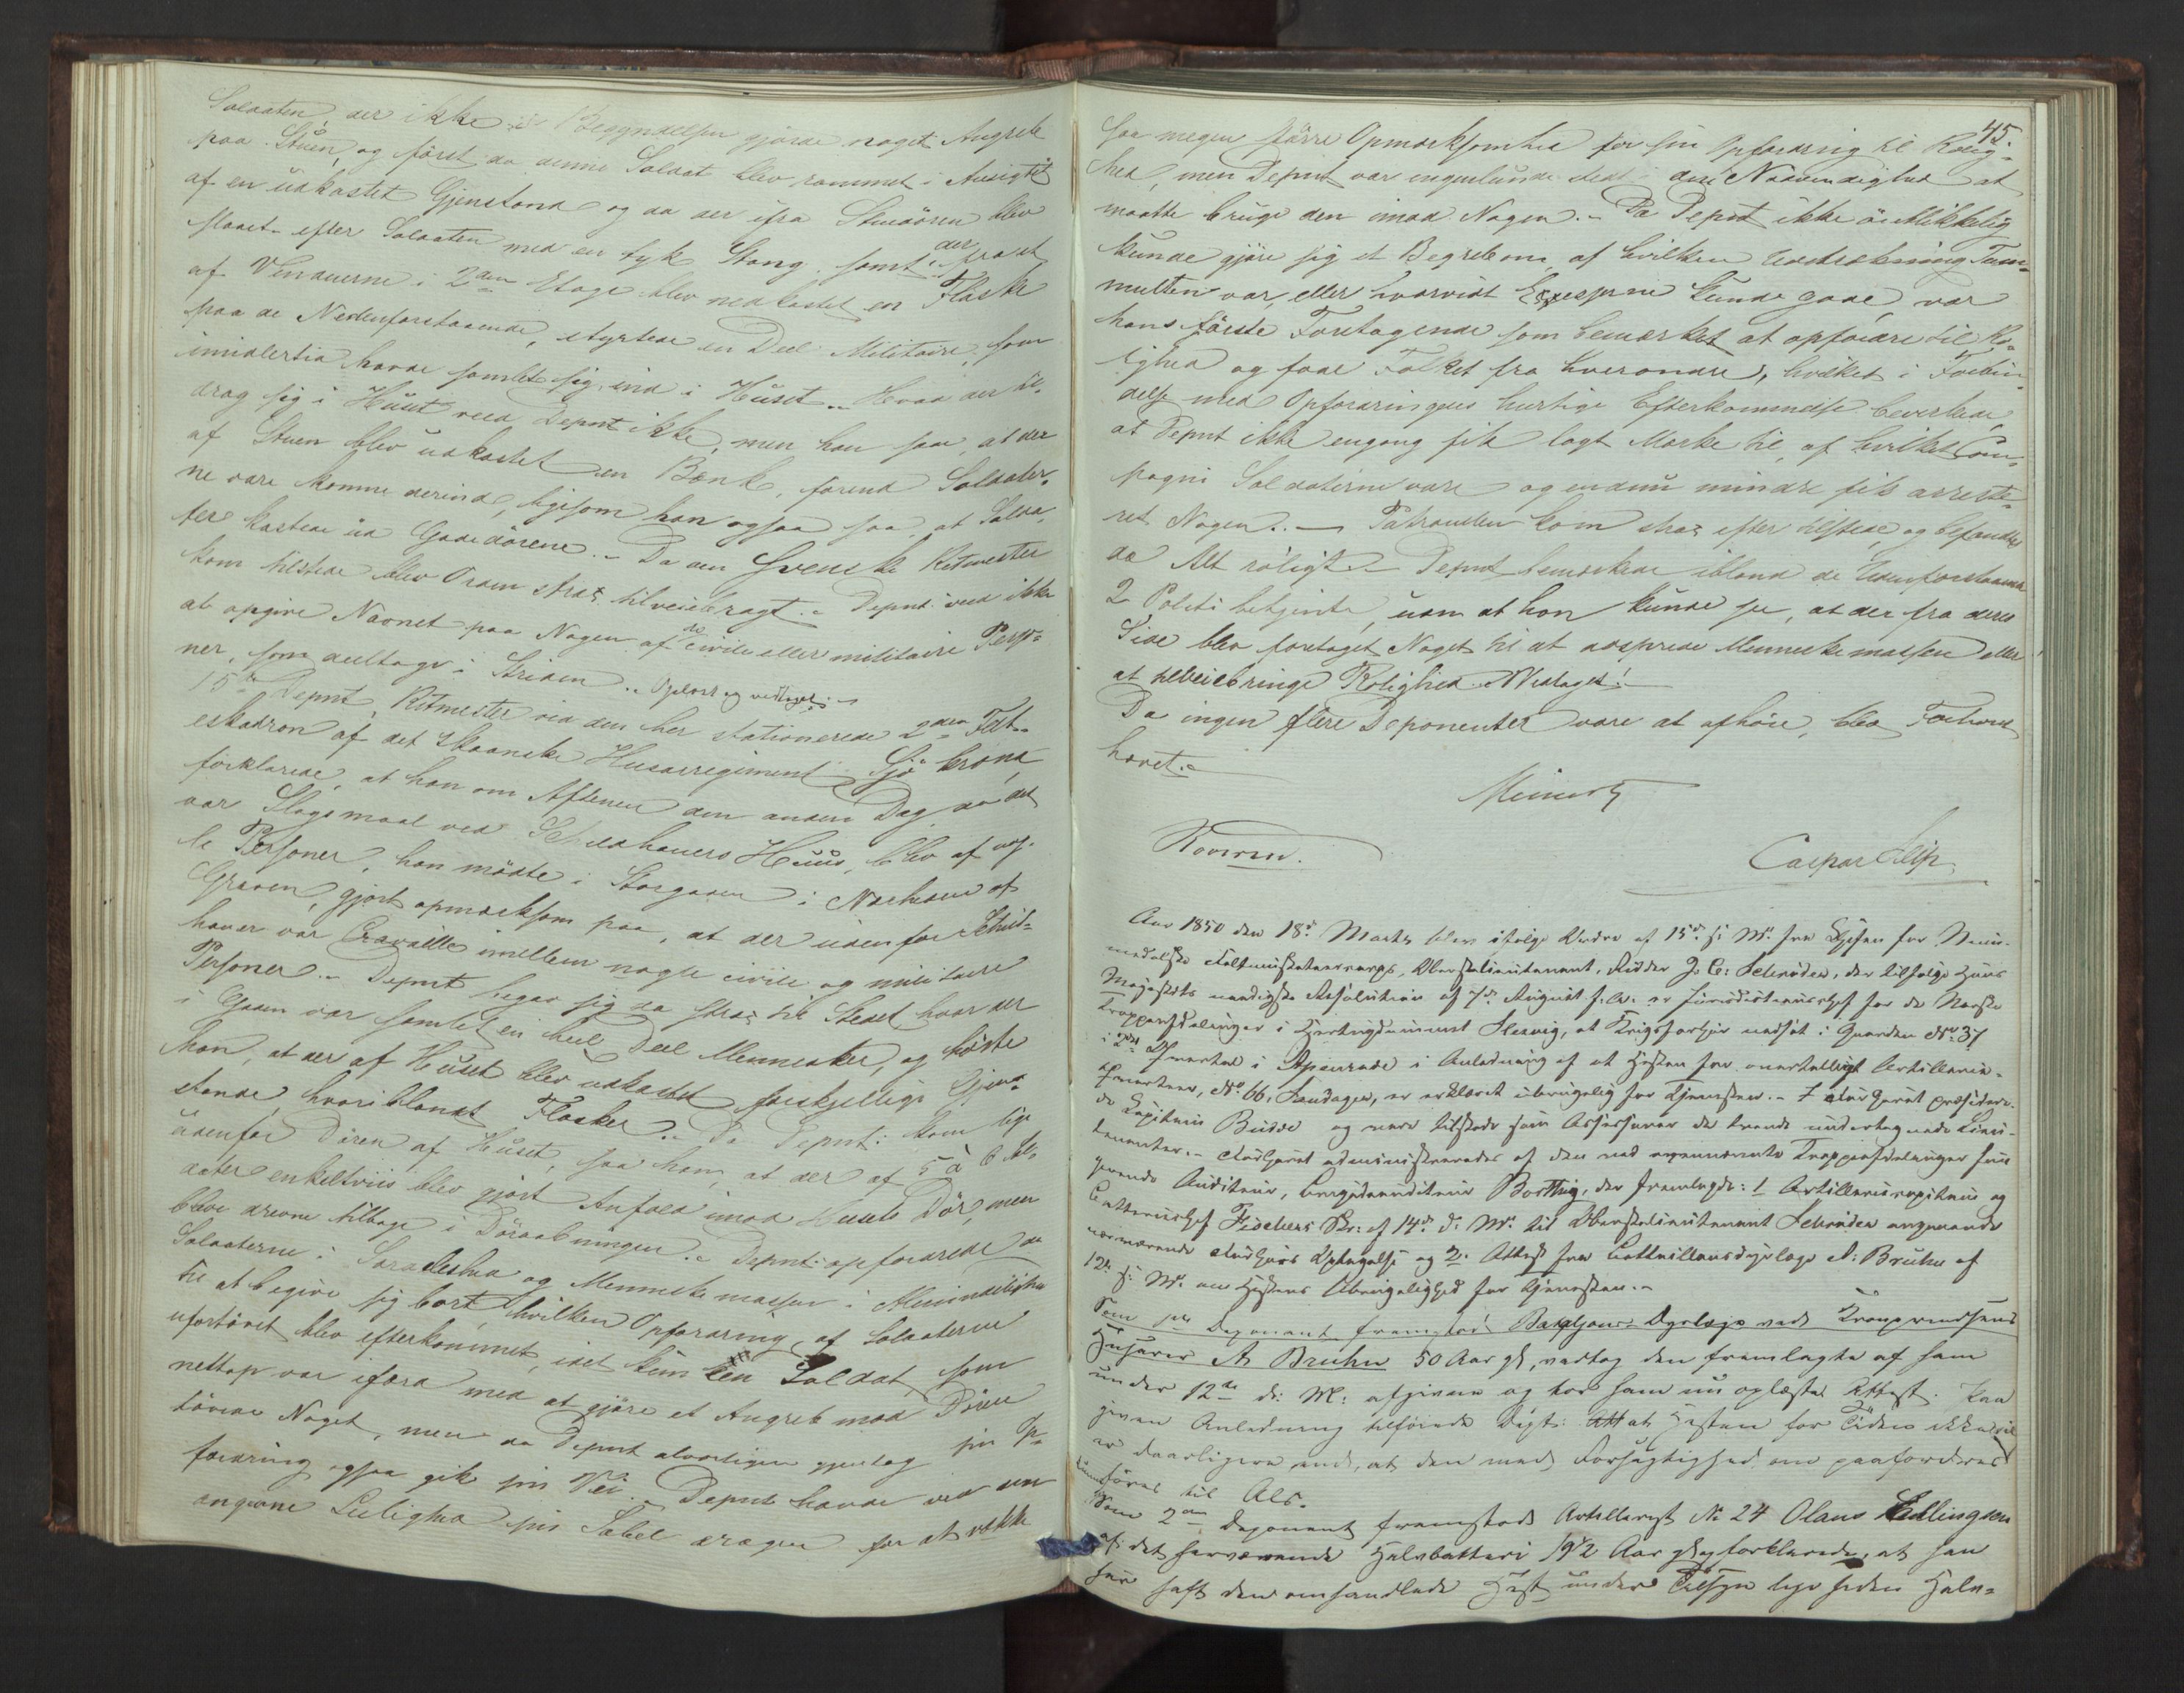 Soldaten, der ikke i Begyndelsen gjorde noget Angreb
paa Stuen, og først da denne Soldat blev rammet i Ansigtet
af en udkastet Gjenstand og da der ifra Stuedøren blev
slaaet efter Soldaten med en tyk Stang, samt der fra et
af Vinduerne i 2den Etage blev nedkastet en Flaske
paa de Nedenforstaaende, styrtede en Deel Militaire, som
imidlertid havde samlet sig, ind i Huset. Hvad der til-
drog sig i Huset veed Depnt ikke, men han saa, at der
af Stuen blev udkastet en Bænk, førend Soldater-
ne vare komne derind, ligesom han ogsaa saa, at Solda-
ter kastede ud Gadedørene. - Da den Svenske Ritmester
kom tilstede blev Orden strax tilveiebragt. - Depnt. veed ikke
at opgive Navnet paa Nogen af de civile eller militaire Perso-
ner, som deeltoge i Striden. - Oplæst og vedtaget. -
15de Depnt, Ritmester ved den her stationerede 2den Felt-
eskadron af det Skaanske Husarregiment Sjöcrona,
forklarede, at han om Aftenen den anden Dag, da det
var Slagsmaal ved Schildhauers Huus, blev af nog-
le Personer, han mødte i Storgaden i Nærheden af
Graven, gjort opmærksom paa, at der udenfor Schild-
hauer var Cravalle imellem nogle civile og militaire
Personer. - Depnt begav sig da strax til Stedet, hvor der
i Gaden var samlet en heel Deel Mennesker, og hørte
han, at der af Huset blev udkastet forskjellige Gjen-
stande, hvoriblandt Flasker. - Da Depnt. kom lige
udenfor Døren af Huset, saa han, at der af 5 à 6 Sol-
dater enkeltviis blev gjort Anfald imod Husets Dør, men
bleve drevne tilbage i Døraabningen. - Depnt. opfordrede da
Soldaterne i Særdeleshed og Menneskemassen i Almindelighed
til at begive sig bort, hvilken Opfordring, af Soldaterne
ufortøvet blev efterkommet, idet kun een Soldat, som
nettop var ifærd med at gjøre et Angreb mod Døren
tøvede Noget, men da Depnt alvorligen gjentog sin Op-
fordring ogsaa gik sin Vei. - Depnt havde ved den
angivne Leilighed sin Sabel dragen for at vække
45.
saa megen større Opmærksomhed for sin Opfordring til Rolig-
hed, men Depnt var ingenlunde sted i den Nødvendighed at
maatte bruge den imod Nogen. - Da Depnt ikke øieblikkelig
kunde gjøre sig et Begreb om, af hvilken Udstrækning Tum-
multen var, eller hvorvidt Excesserne kunde gaae, var
hans første Foretagende som bemærket at opfordre til Ro-
lighed og faae Folket fra hverandre, hvilket i Forbin-
delse med Opfordringens hurtige Efterkommelse bevirkede
at Depnt ikke engang fik lagt Mærke til, af hvilket Com-
pagni Soldaterne vare og endnu mindre fik arreste-
ret Nogen. - Patrouillen kom strax efter tilstede, og befandtes
da Alt roligt. - Depnt bemærkede iblandt de Udenforstaaende
2 Politibetjente, uden at han kunde see, at der fra deres
Side blev foretaget Noget til at adsprede Menneskemassen eller
at tilveiebringe Rolighed. - Vedtaget! -
Da ingen flere Deponenter vare at afhøre, blev Forhøret
hævet. -
Meinertz
Caspar
Aar 1850 den 18de Marts blev ifølge Ordre af 15de ds. Ms. fra Chefen for
Oberstlieutenant, Ridder J. C. Schrøder, der tilfølge Hans
Majestæts naadigste Resolution af 7de August f. A. er Jurisdictionschef for de Norske
Troppeafdelinger i Hertugdømmet Slesvig, et Krigsforhør nedsat i Gaarden No 37
i 2det Qvarteer i Apenrade i Anledning af at Hesten for Artillerie-
No 66, er erklæret ubrugelig for Tjenesten. - Forhøret præsidere-
de Capitain Budde og vare tilstede som Assessorer de tvende undertegnede Lieu-
tenanter. - Forhøret administreredes af den ved Troppeafdelinger fun-
gerende Auditeur, Brigadeauditeur Borthig, der fremlagde: 1 Artilleriecapitain og
Batteriechef Fischers Skr. af 14de ds. Ms. til Oberstlieutenant Schrøder angaaende
nærværende Forhørs Optagelse og 2. Attest fra Bataillonsdyrlæge A. Bruhn af
12te ds. Ms. om Hestens Ubrugelighed for Tjenesten. -
Som 1ste Deponent fremstod Bataljons-Dyrlæge ved Kronprindsens
Husarer A Bruhn 50 Aar gl, vedtog den fremlagte af ham
under 12te ds: M: afgivne og for ham nu oplæste Attest. Paa
given Anledning tilføiede Dept: at Hesten for Tiden ikke
er daarligere end, at den med Forsigtighed om paafordres
kunde føres til Als.
Som 2den Deponent fremstod Artillerist No 24 Olaus Edlingsen
af det herværende Halvbatteri 19½ Aar gl og forklarede, at han
har haft den omhandlede Hest under Tilsyn lige siden Halv-